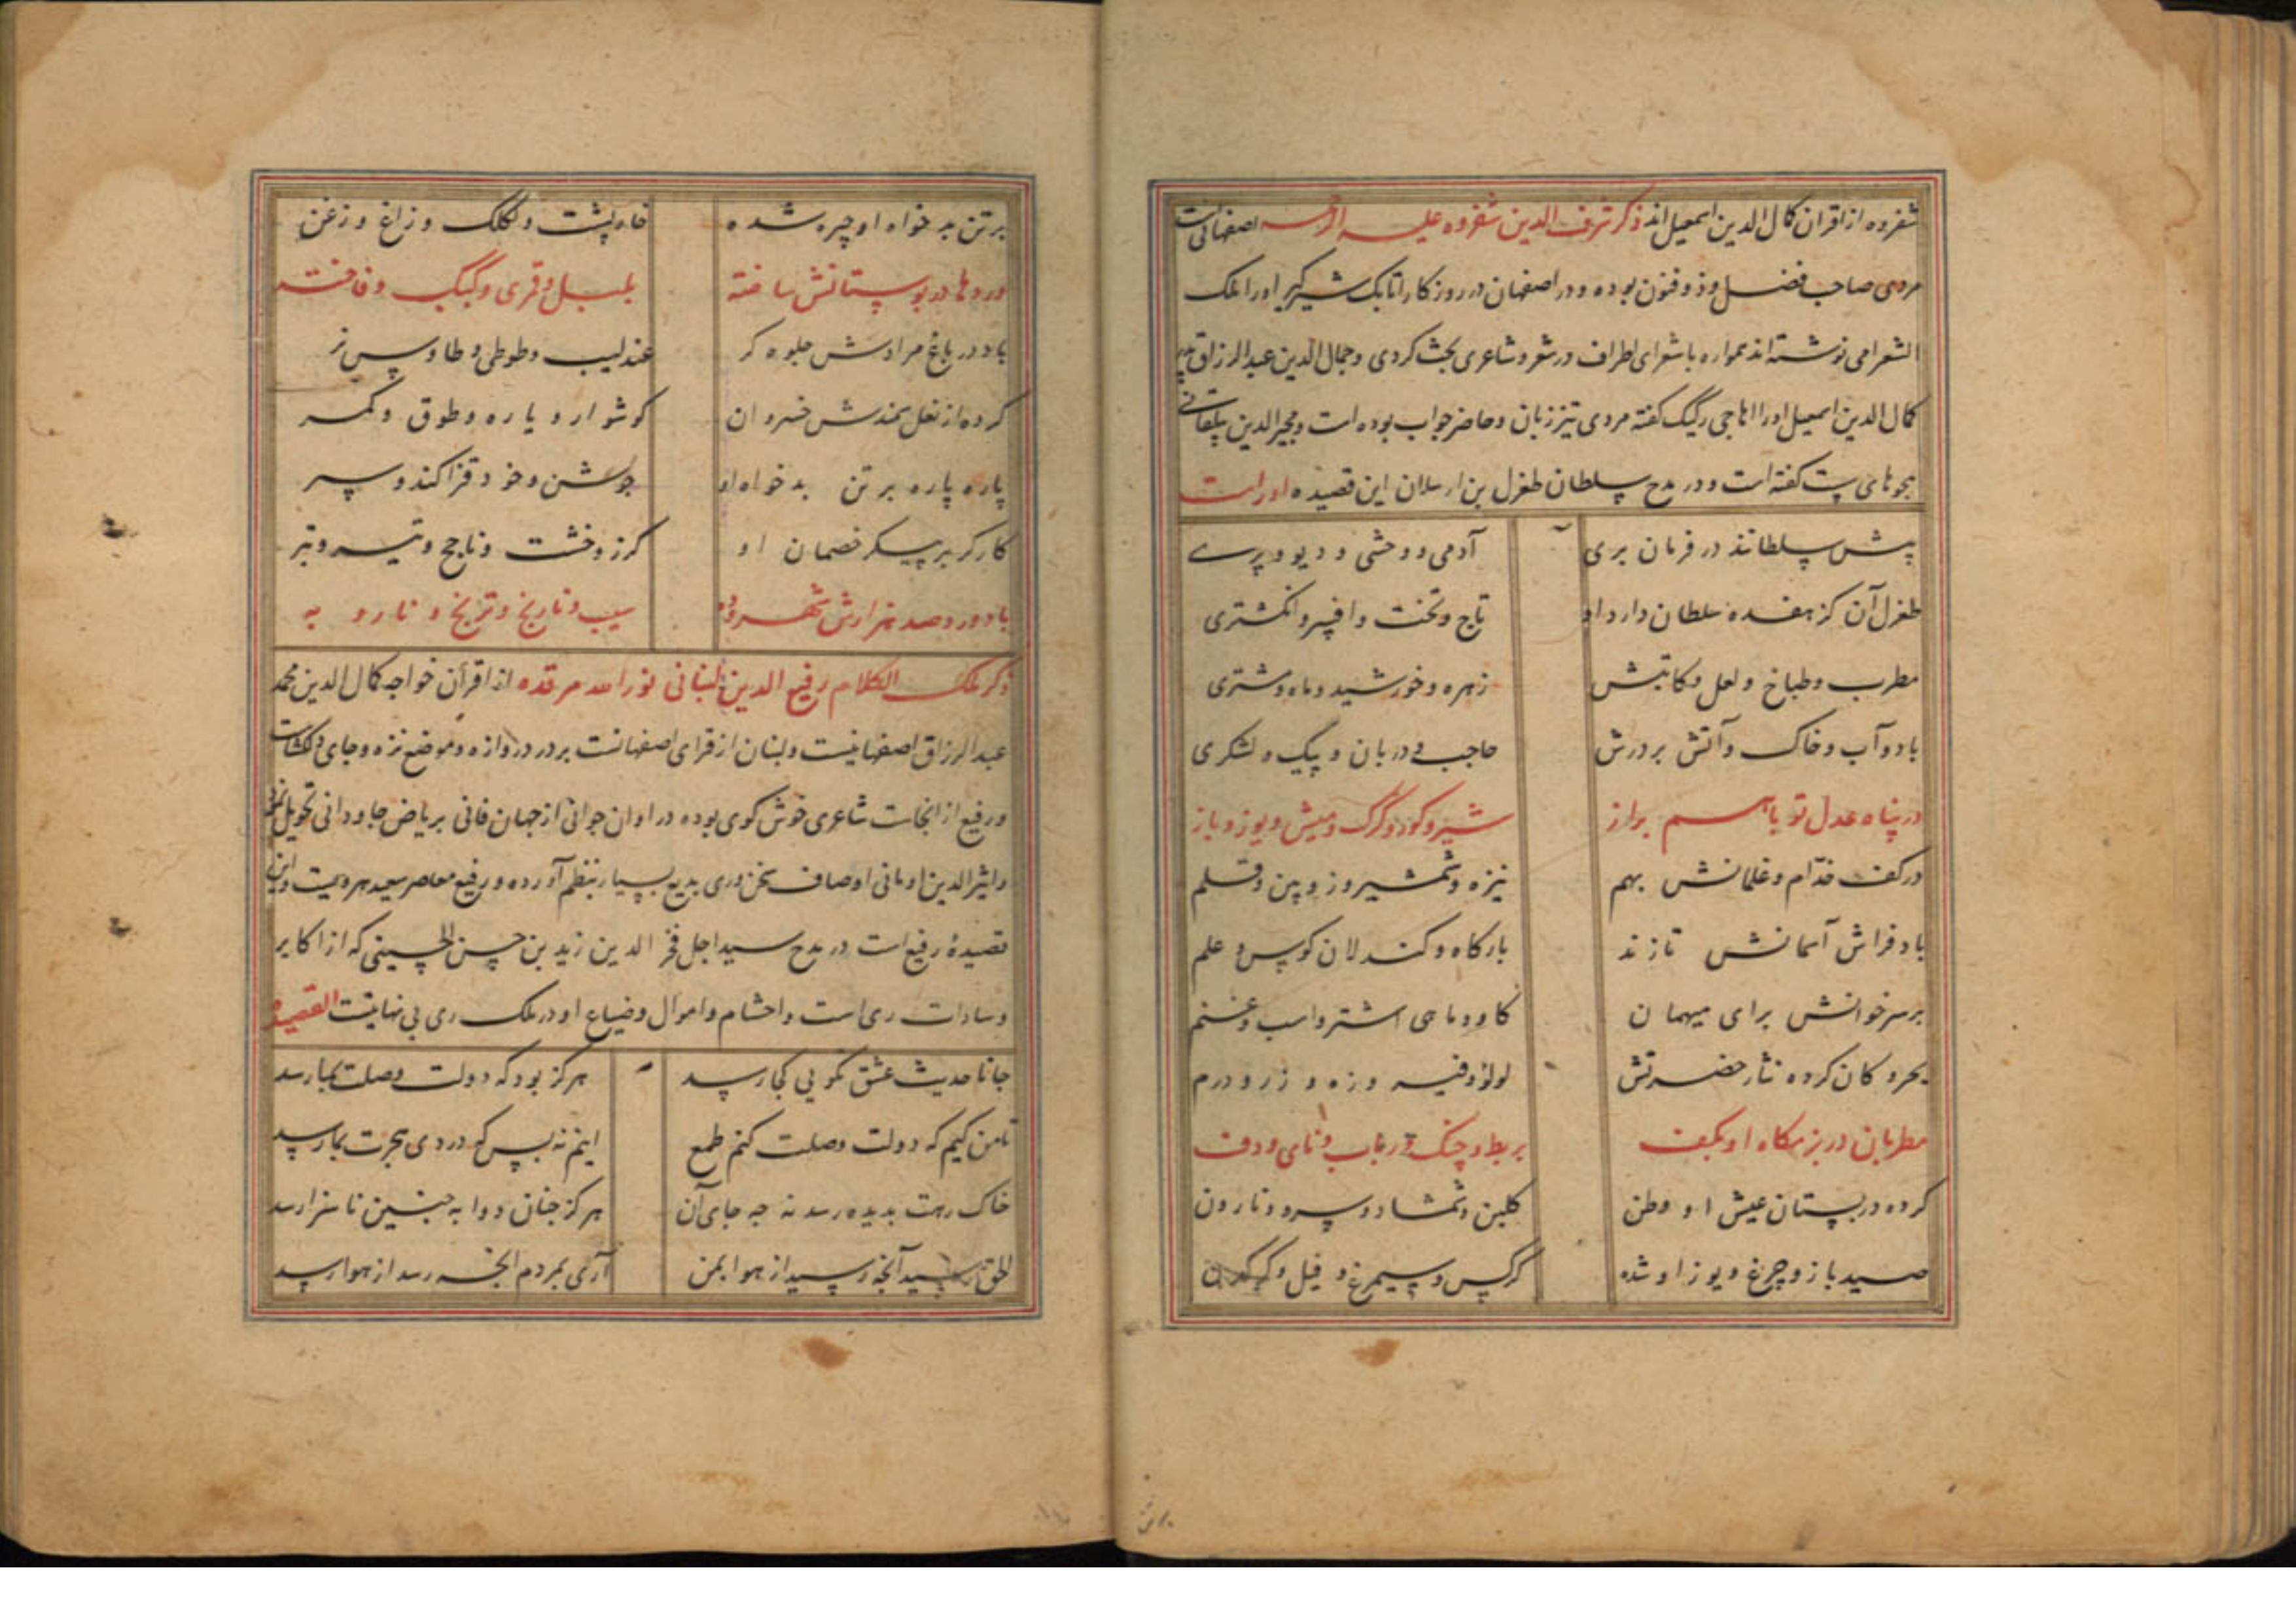 شفروه از اقران کمال الدین اسمعیل اند ذکر شرف الدین شفروه علیه الرحمه اصفهانی است
مردی صاحب فضل و ذوفنون بوده و در اصفهان در روزکار اتابک شیرکیر او را ملک
الشعرا می نوشته اند همواره با شعرای اطراف در شعر و شاعری بحث کردی و جمال الدین عبدالرزاق پدر
کمال الدین اسمعیل او را اهاجی رکیک کفته مردی تیز زبان و حاضر جواب بوده است و مجیر الدین بیلقانی
هجوهای پست کفته است و در مدح سلطان طغرل بن ارسلان این قصیده او راست
پیش سلطانند در فرمان بری آدمی و وحشی و دیو و پرے
طغرل آن کز هفده سلطان دارد او تاج و تخت و افسر و انکشتری
مطرب و طباخ و لعل و کاتبش زهره و خورشید و ماه و مشتری
باد و آب و خاک و آتش بر درش حاجب و دربان و پیک و لشکری
در پناه عدل تو باهم براز شیر و کور و کرک و میش و یوز و باز
در کف خدّام و غلمانش بهم نیزه و شمشیر و زوپین و قلم
باد فراش آسمانش تا زند بارکاه و کندلان کوس و علم
بر سر خوانش برای میهمان کاو و ماهی اشتر و اسب و غنم
بحر و کان کرده نثار حضرتش لولو و فیروزه و زر و درم
مطربان در بزمکاه او بکف بربط و چنک و رباب و نای و دف
کرده در بستان عیش او وطن کلبن و شمشاد و سرو و نارون
صید باز و چرغ و یوز او شده کرکس و سیمرغ و فیل و کرکدن
بر تن بد خواه او چیره شده خارپشت و لکلک و زاغ و زغن
وردها در بوستانش ساخته بلبل و قمری و کبک و فاخته
باد در باغ مرادش جلوه کر عندلیب و طوطی و طاوس نر
کرده از نعل سمندش خسروان کوشوار و یاره و طوق و کمر
پاره پاره بر تن بد خواه او جوشن و خود و قزاکند و سپر
کارکر بر پیکر خصمان او کرز و خشت و ناچخ و تیر و تبر
باد در دو صد هزارش شهر و ده سیب و نارنج و ترنج و نار و به
ذکر ملک الکلام رفیع الدین لنبانی نور الله مرقده از اقران خواجه کمال الدین محمد
عبدالرزاق اصفهانیست و لنبان از قرای اصفهانست بر در دروازه و موضع نزه و جای دلکشاست
و رفیع از انجاست شاعری خوش کوی بوده در اوان جوانی از جهان فانی بریاض جاودانی تحویل نمود
و اثیر الدین اومانی اوصاف سخن وری بدیع بسیار بنظم آورده و رفیع معاصر سعید هرویست و این
قصیدهٔ رفیع است در مدح سید اجل فخر الدین زید بن حسن الحسینی که از اکابر
و سادات ری است و احشام و اموال و ضیاع او در ملک ری بی نهایت القصیده
جانا حدیث عشق نکویی کجا رسد هرکز بود که دولت وصلت بما رسد
تا من کیم که دولت وصلت کنم طمع اینم نه بس که دردی هجرت بما رسد
خاک رهت بدیده رسد نه چه جای آن هرکز چنان دوا به چنین ناسزا رسد
آنچه رسید از هوا بمن آری بمردم آنچه رسد از هوا رسد